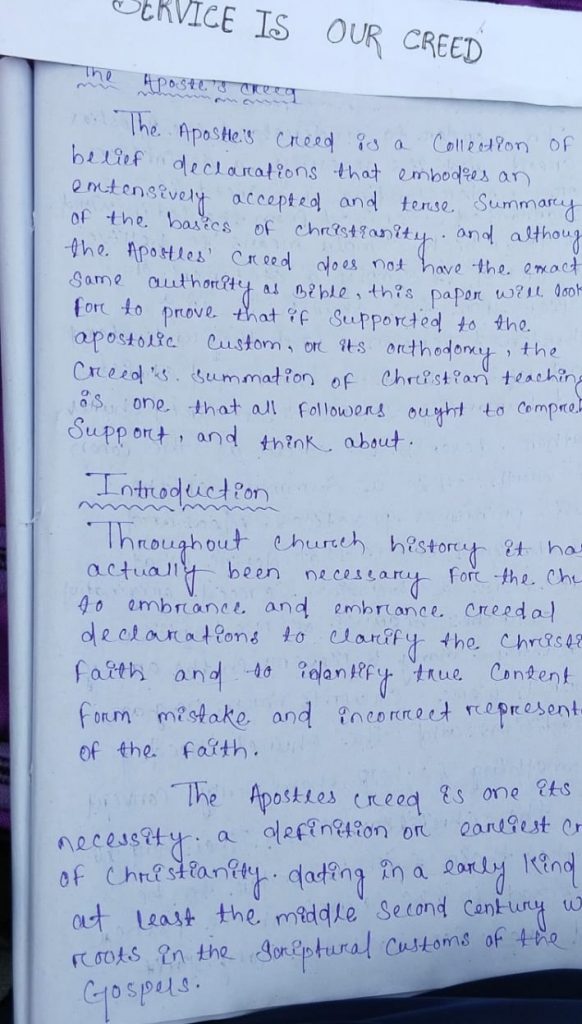 SERVICE IS OUR CREED
The Apostle's creed
The Apostle's Creed is a Collection of
belief declarations that embodies an
extensively accepted and terse Summary
of the basics of christianity. and althoug
the Apostles' Creed does not have the exact
Same authority as Bible, this paper will look
for to prove that if Supported to the
apostolic Custom, or its orthodoxy, the
Creed's. summation of Christian teaching
is one that all followers ought to Compre
Support, and think about.
Introduction
Throughout church history it ha
actually been necessary For the Chu
to embrance and embrance creedal
declarations to clarify the Christi
faith and to idantify true Content
form mistake and incorrect represent
of the faith.
The Apostles creed is one its
necessity. a definition or earliest cr
of Christianity. dating in a early kind
at least the middle Second Century w
roots in the Scriptural Customs of the
Gospels.